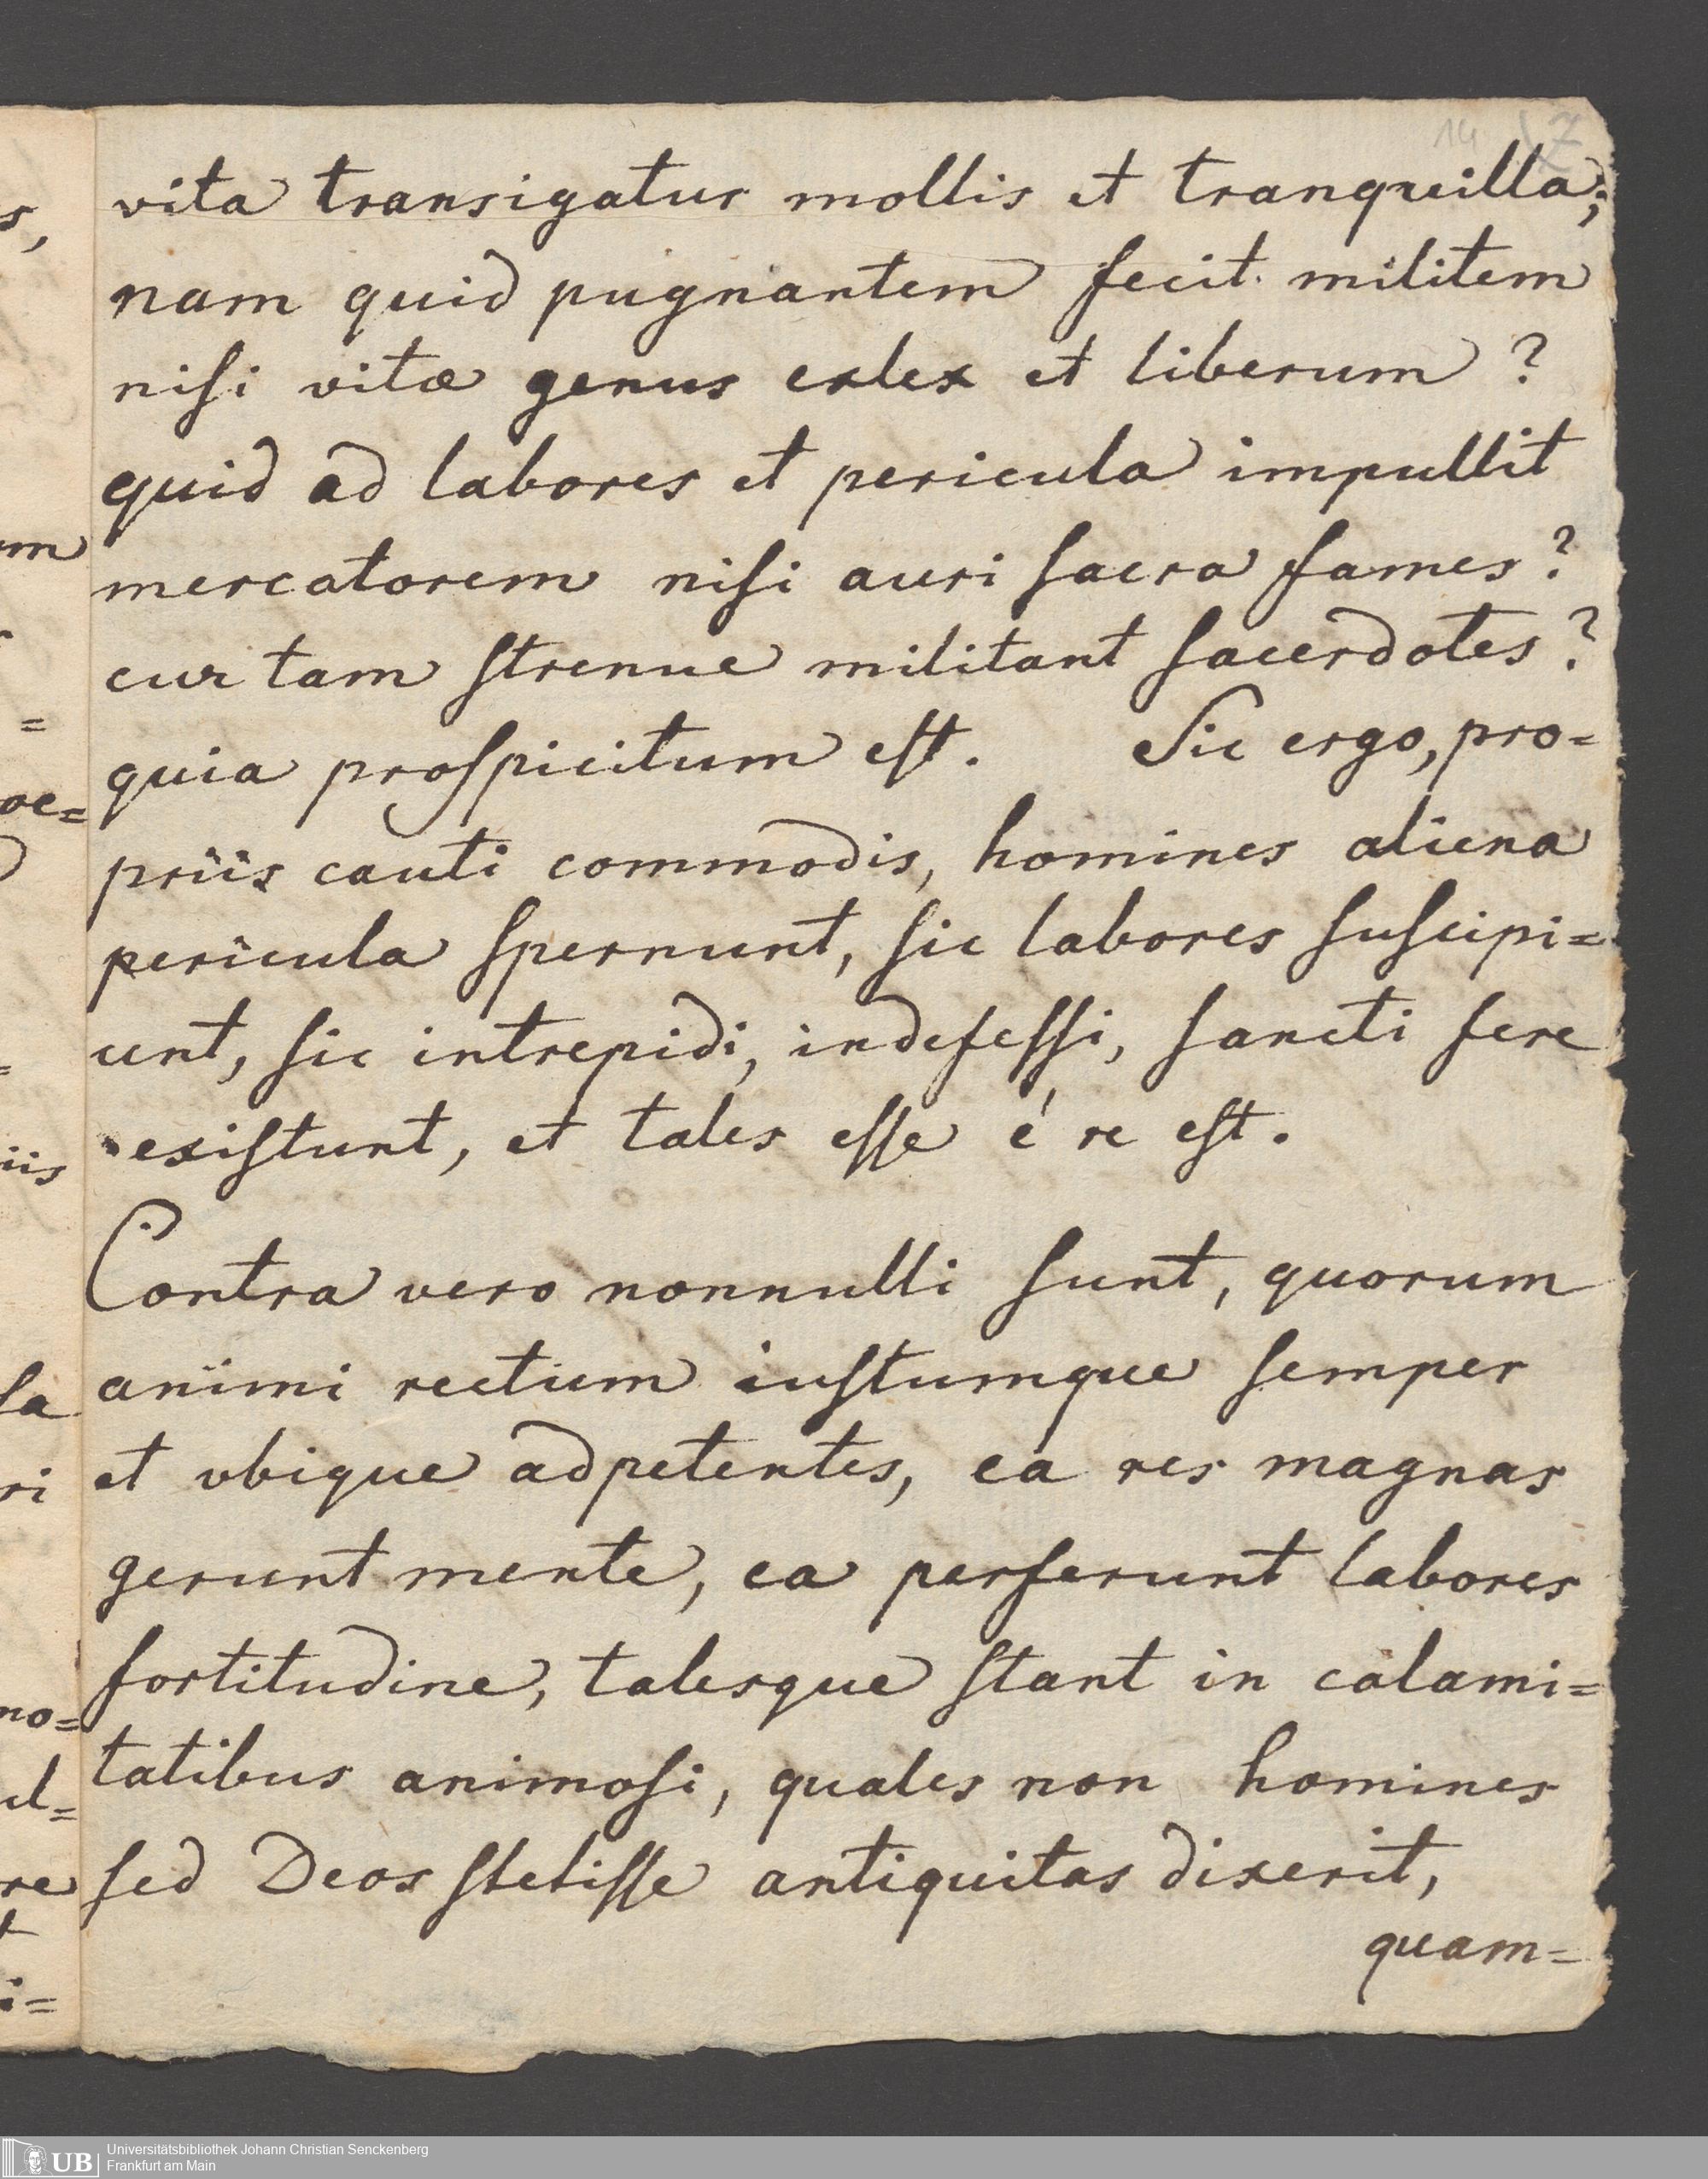 14
vita transigatur mollis et tranquilla;
nam quid pugnantem fecit militem
nisi vitæ genus exlex et liberum?
quid ad labores et pericula impullit
mercatorem nisi auri sacra fames?
cur tam strenue militant sacerdotes?
quia prospicitum est. Sic ergo, pro=
priis cauti commodis, homines aliena
pericula spernunt, sic labores suscipi=
unt, sic intrepidi, indefessi, sancti fere
existunt, et tales esse é re est.
Contra vero nonnulli sunt, quorum
animi rectum iustumque semper
et vbique adpetentes, eá res magnas
gerunt mente, ea perferunt labores
fortitudine, talesque stant in calami=
tatibus animosi, quales non homines
sed Deos stetisse antiquitas dixerit,
quam=
UB
Universitätsbibliothek Johann Christian Senckenberg
Frankfurt am Main